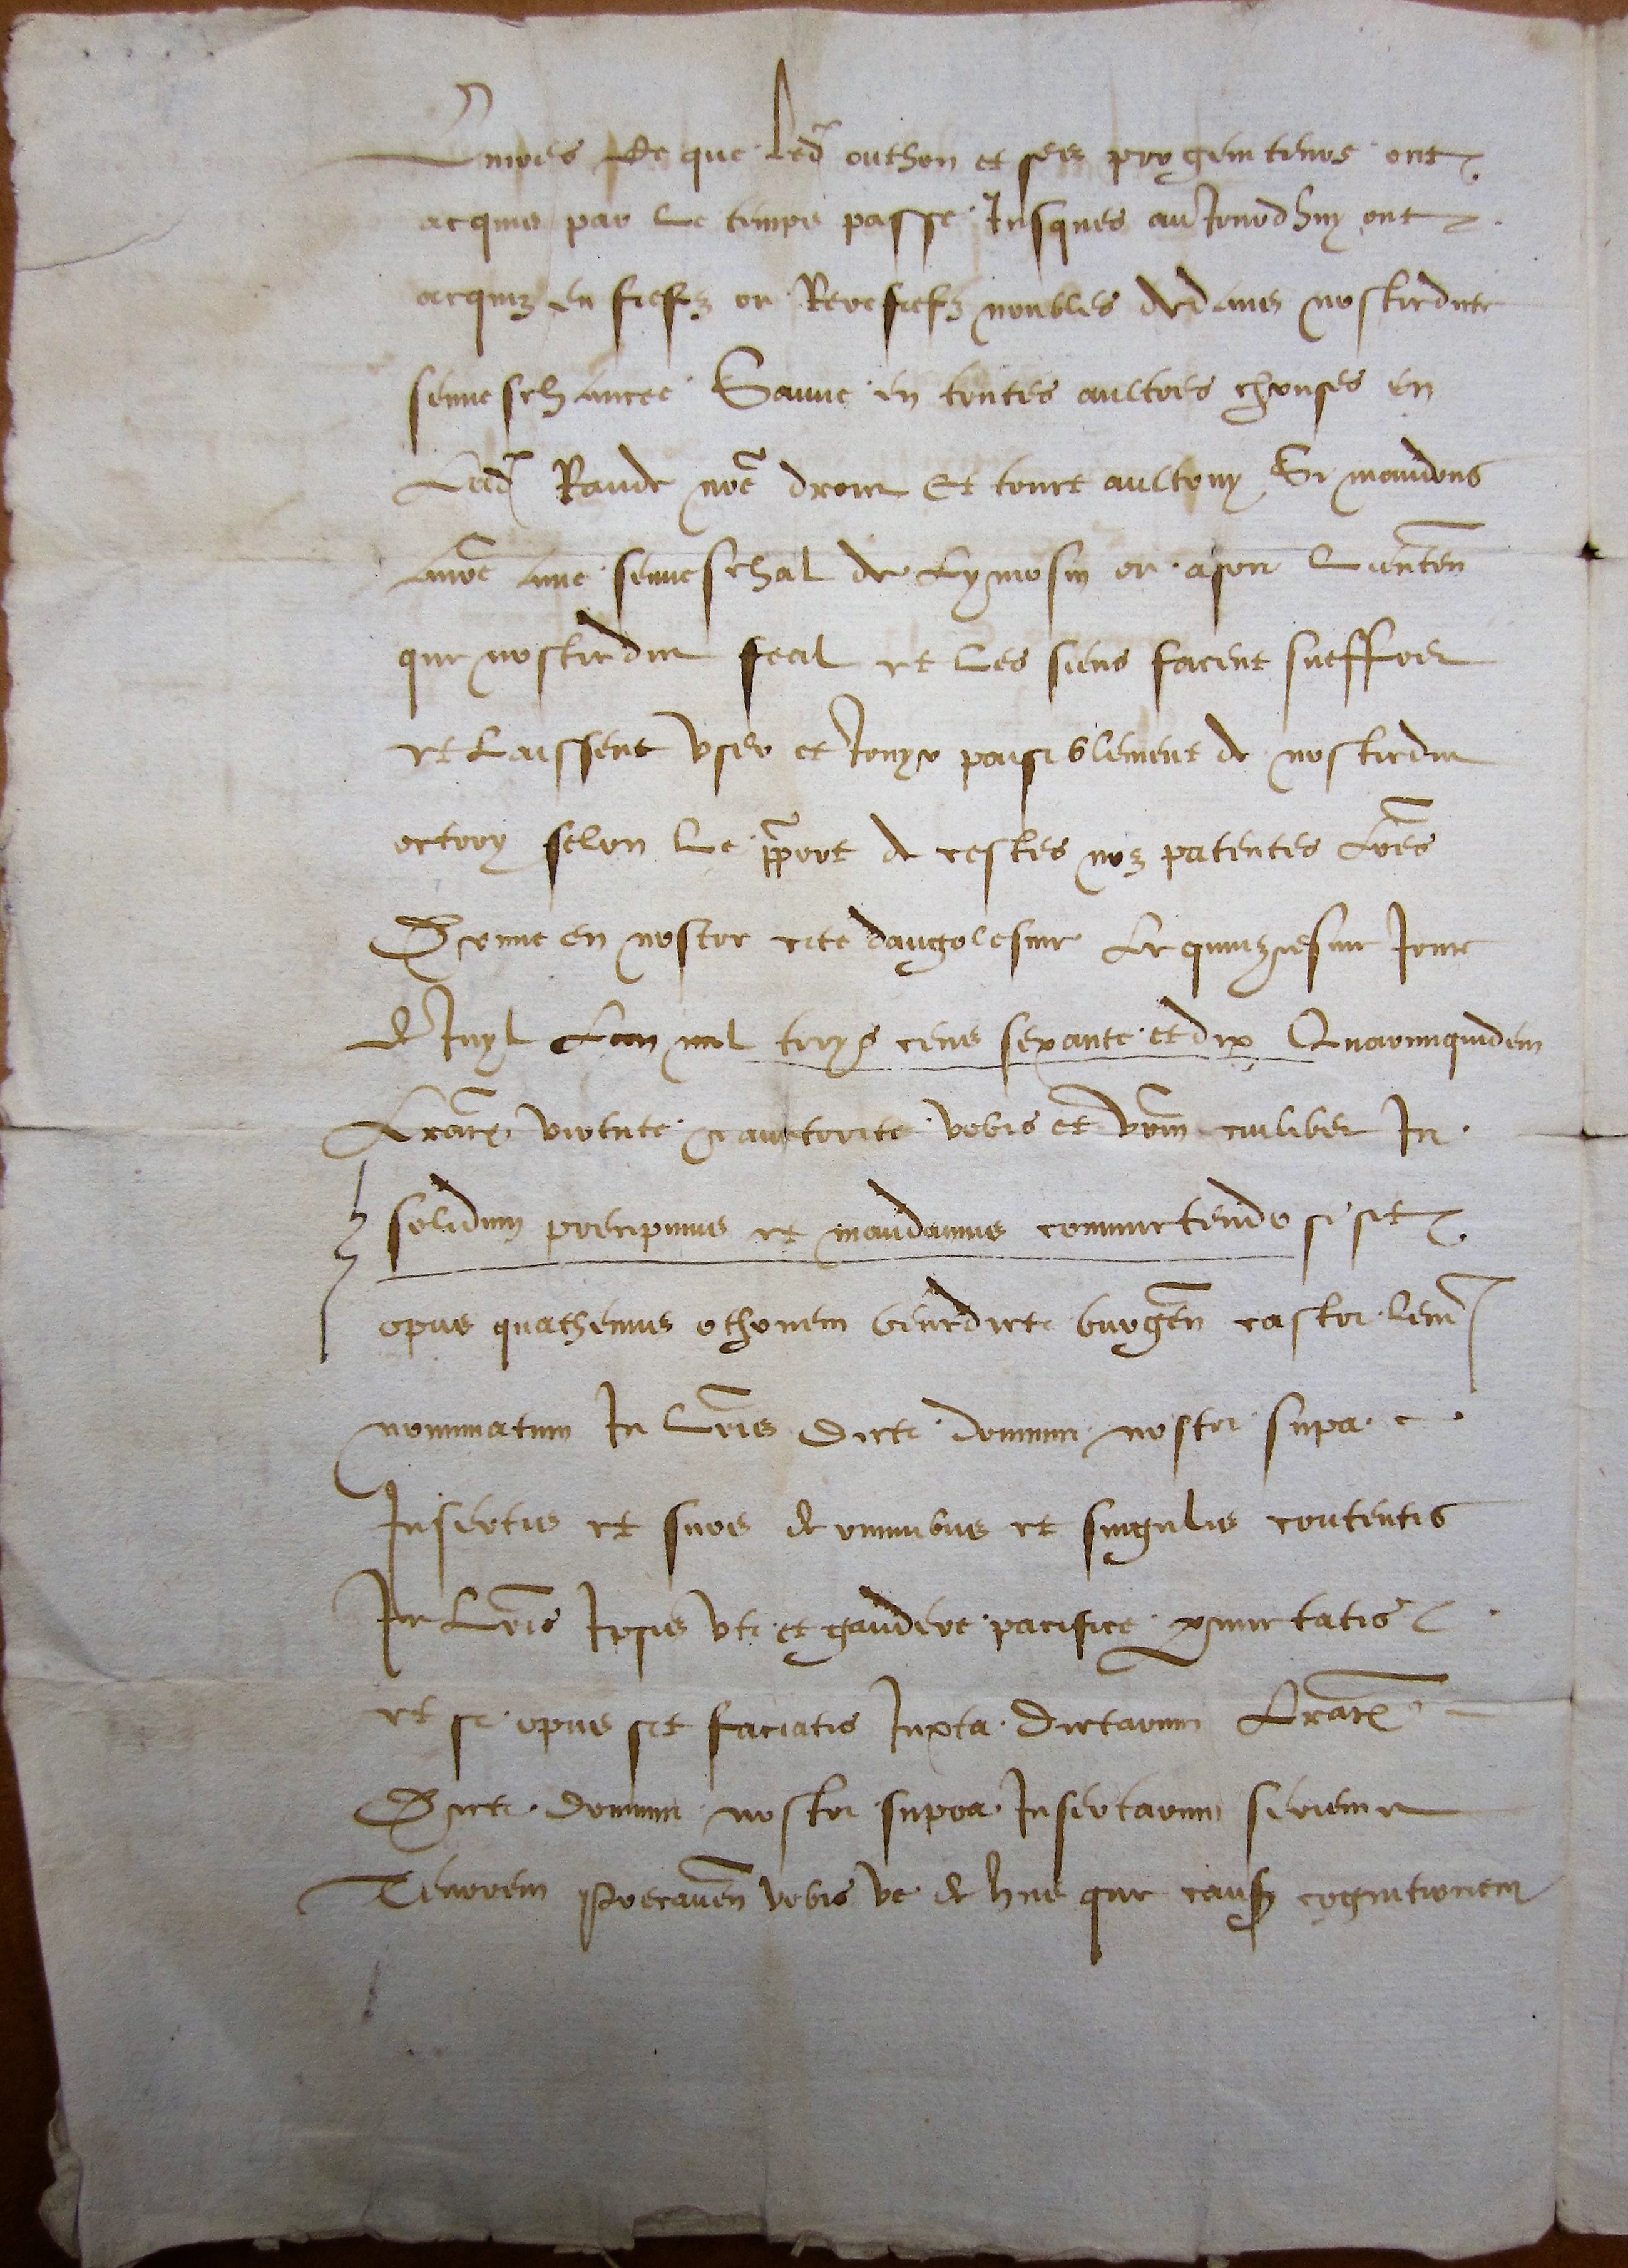 de que led outhon et ses progeniteurs ont
acquis par le temps passe Jusques auJourdhuy ont
acquiz en fiefz ou Rerefiefz noubles dedans nostredite
senneschaucee Sauve en toutes aultres chouses en
Led nre droit Et tout aultruy Si mandons
senneschal de Lymosin ou a son lieuten
que nostredit feal et les siens facent sueffrer
et laissent user et Jouyr paisiblement de nostredit
octroy selon le pport de cestes noz patentes lres
Donne en nostre cite dangolesme Le quinziesme Jour
de Juyl Lan mil troys cens sexante et dix Quarumquidem
Lrarum virtute et auctorite vobis et vrum cuilibet In
solidum precipimus et mandamus committendo si sit
opus quathenus othonem benedicti burgen castri lem
nominatum In lris dicti domini nostri supa
Insertis et suos de omnibus et singulis contentis
In lris Ipsis uti et gaudere pacifice permictatis
et si opus sit faciatis Juxta dictarum Lrarum
Dicti domini nostri supra Insertarum seriem et
Tenorem precaven vobis ne de hiis que causse cognitionem